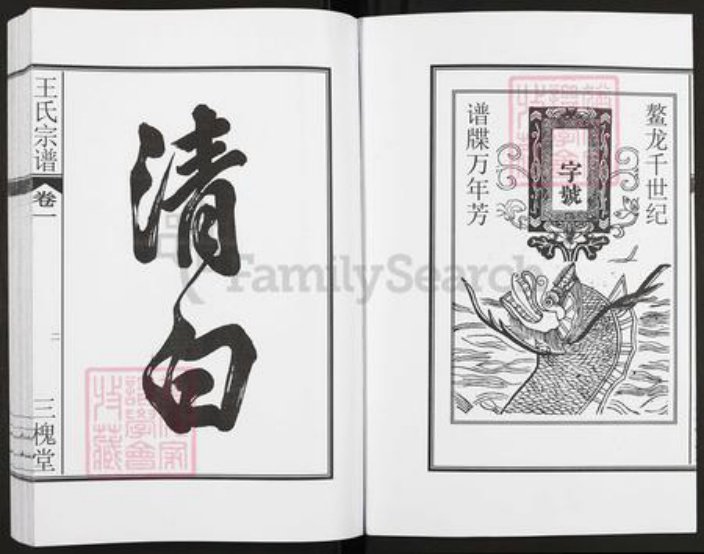 鳌龙千世纪
字號
谱牒万年芳
清白
王氏宗谱
卷一
二
三槐堂
FamilySearch